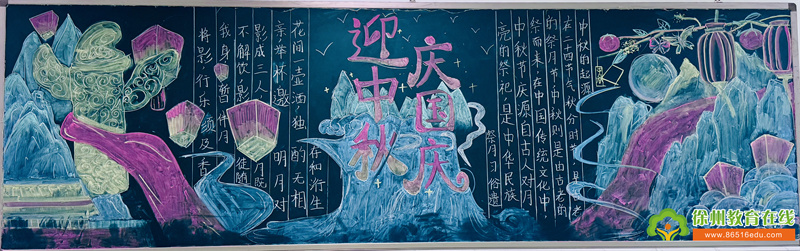 迎中秋
庆国庆
中秋的起源
在二十四节气秋分时节是古老
的祭月节中秋则是由古老的
祭而来在中国传统文化中
中秋节庆源自古人对月
亮的祭祀是中华民族
祭月习俗遗
存和衍生
花间一壶酒独酌无相
亲举杯邀明月对
影成三人月既
不解饮影徒随
我身暂伴月
将影行乐须及春
徐州教育在线
www.86516edu.com